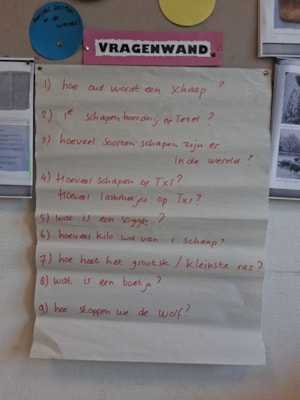 hoeveel soorten
in de wereld?
VRAGENWAND
1) hoe oud wordt een schaap?
2) 1e schapenboerderij op Texel?
3) hoeveel soorten schapen zijn er
in de wereld?
4) Hoeveel schapen op Txl?
Hoeveel lammetjes op Txl?
5) wan is een
6) hoeveel kilo wol van 1 schaap?
7) hoe heet het grootste / kleinste ras?
8) wat is een boetje?
9) hoe stoppen we de wolf?